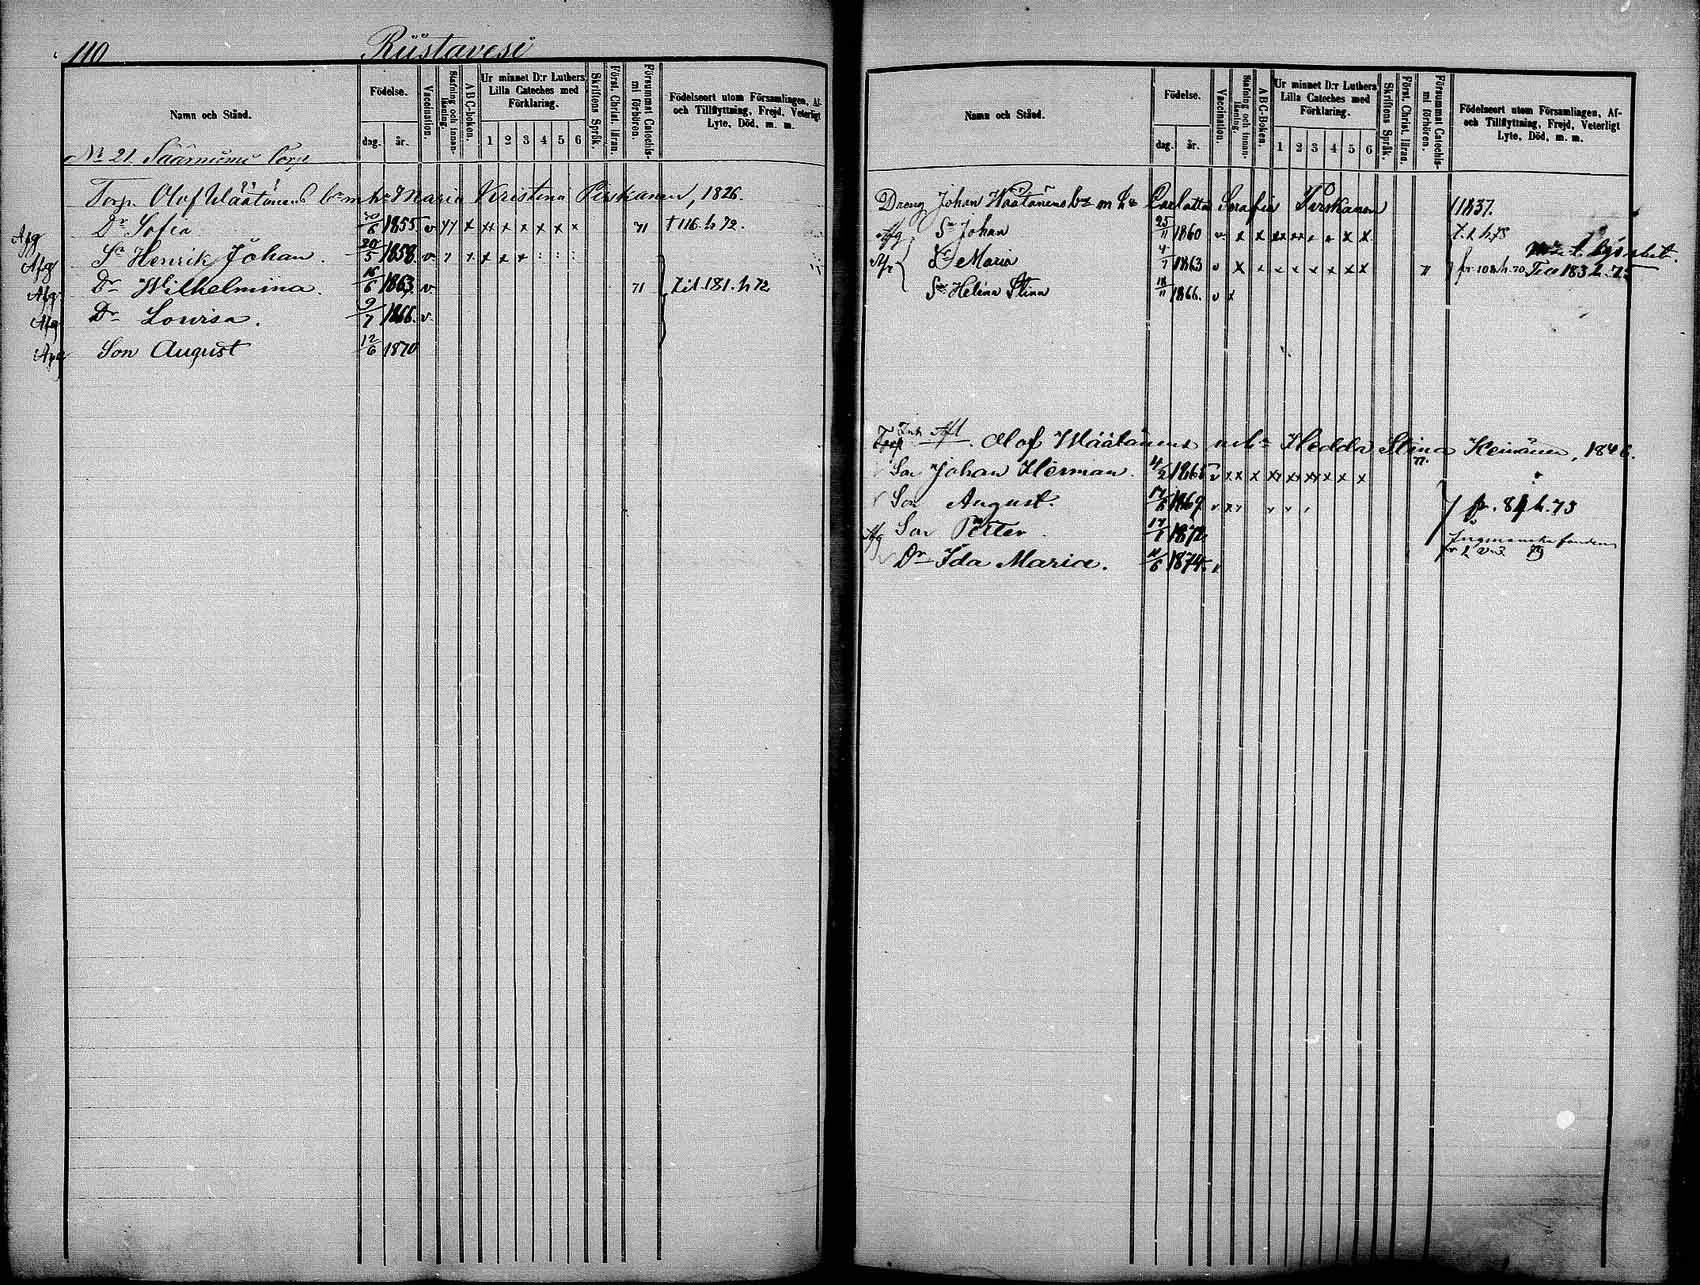 110 Riistavesi
Namn och Stånd.
Födelse.
dag. år.
Vaccination
Stafning och innan-läsning.
A B C-boken.
Ur minnet D:r Luthers Lilla Cateches med Förklaring.
1 2 3 4 5 6
Skriftens Språk.
Först. Christ. läran.
Försummat Catechis-mi förhören.
Födelseort utom Församlingen, Af- och Tillflyttning, Frejd, Veterligt Lyte, Död, m. m.
N:o 21 Torp
Torp. Olof Wäätänens Maria Kristina Pirskanen, 1826.
Afg Dr Sofia 1855 v x x x x x x x 71 † 116. h 72.
Afg Sn Henrik Johan. 20/5 1858. v x x x
Afg Dr Wilhelmina. 16/6 1863 v 71 Till 181. h 72
Afg Dr Lowisa. 9/7 1866. v
Afg Son August 12/6 1870
Namn och Stånd.
Födelse.
dag. år.
Vaccination.
Stafning och innan-läsning.
A B C-boken.
Ur minnet D:r Luthers Lilla Cateches med Förklaring.
1 2 3 4 5 6
Skriftens Språk.
Först. Christ. läran.
Försummat Catechis-mi förhören.
Födelseort utom Församlingen, Af- och Tillflyttning, Frejd, Veterligt Lyte, Död, m. m.
Dreng Johan Wäätänens m Carlotta Serafia Pirskanen 1837.
Afg Sn Johan 25/11 1860 v x x x x x x x x
Dr Maria 4/7 1863 v x x x x x x x 71 fr 108. h. 70 Till 183 h. 75
Helena Stina 18/11 1866. v x
Olof Wäätänens Hedda Stina Heinänen, 1846.
Son Johan Herman. 4/2 1865 v x x x x x x x x x
Son August. 1869 v fr. 84 h. 73
Afg Son Petter 17/1 1872
Dr Ida Maria. 11/6 1874 v